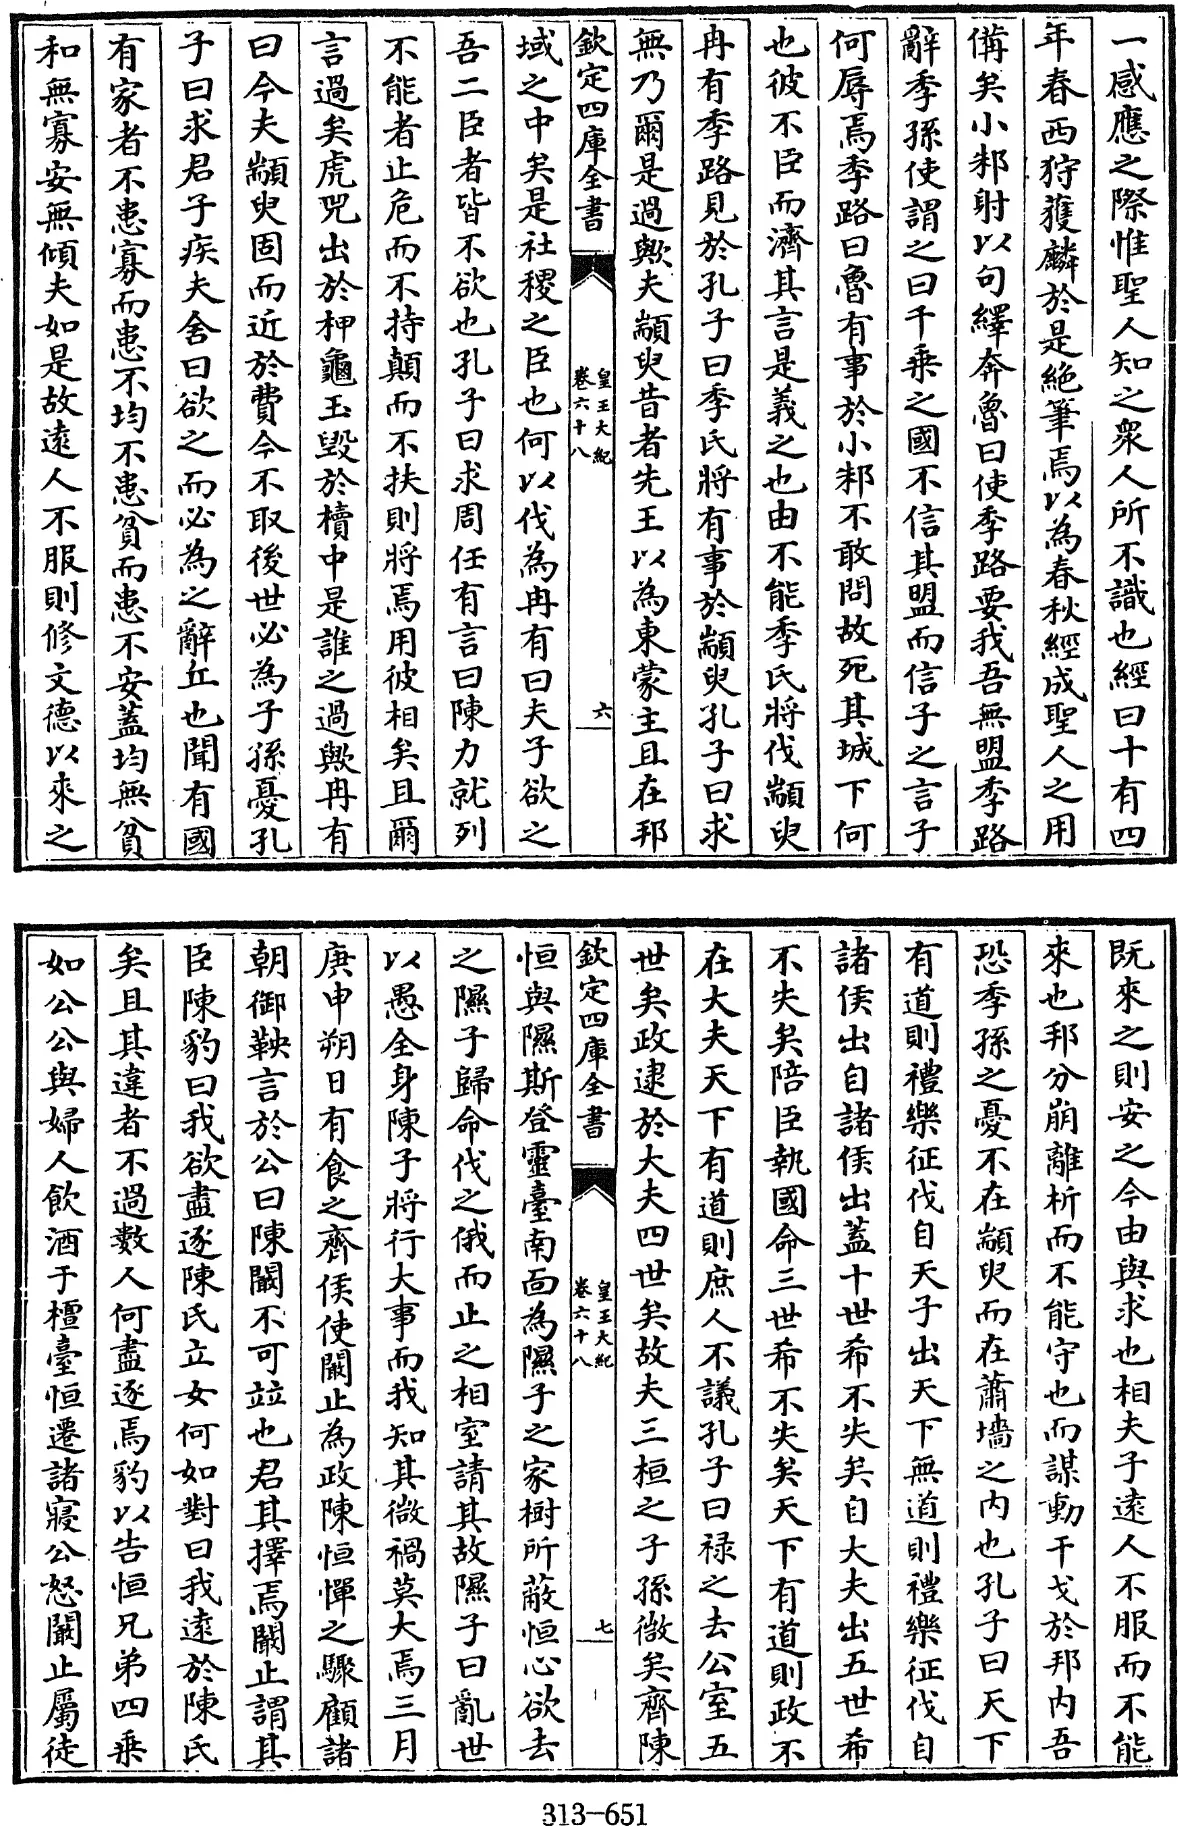 一感應之際惟聖人知之衆人所不識也經曰十有四
年春西狩獲麟於是絶筆焉以為春秋經成聖人之用
備矣小邾射以句繹奔魯曰使季路要我吾無盟季路
辭季孫使謂之曰千乘之國不信其盟而信子之言子
何辱焉季路曰魯有事於小邾不敢問故死其城下何
也彼不臣而濟其言是義之也由不能季氏將伐顓臾
冉有季路見於孔子曰季氏將有事於顓臾孔子曰求
無乃爾是過歟夫顓臾昔者先王以為東蒙主且在邦
欽定四庫全書
皇王大紀
卷六十八
六
域之中矣是社稷之臣也何以伐為冉有曰夫子欲之
吾二臣者皆不欲也孔子曰求周任有言曰陳力就列
不能者止危而不持顛而不扶則將焉用彼相矣且爾
言過矣虎兕出於柙龜玉毀於櫝中是誰之過歟冉有
曰今夫顓臾固而近於費今不取後世必為子孫憂孔
子曰求君子疾夫舍曰欲之而必為之辭丘也聞有國
有家者不患寡而患不均不患貧而患不安蓋均無貧
和無寡安無傾夫如是故逺人不服則修文德以來之
既來之則安之今由與求也相夫子逺人不服而不能
來也邦分崩離析而不能守也而謀動干戈於邦内吾
恐季孫之憂不在顓臾而在蕭墻之内也孔子曰天下
有道則禮樂征伐自天子出天下無道則禮樂征伐自
諸侯出自諸侯出蓋十世希不失矣自大夫出五世希
不失矣陪臣執國命三世希不失矣天下有道則政不
在大夫天下有道則庶人不議孔子曰禄之去公室五
世矣政逮於大夫四世矣故夫三桓之子孫微矣齊陳
欽定四庫全書
皇王大紀
卷六十八
七
恒與隰斯登靈臺南面為隰子之家樹所蔽恒心欲去
之隰子歸命伐之俄而止之相室請其故隰子曰亂世
以愚全身陳子將行大事而我知其微禍莫大焉三月
庚申朔日有食之齊侯使闞止為政陳恒憚之驟顧諸
朝御鞅言於公曰陳闞不可竝也君其擇焉闞止謂其
臣陳豹曰我欲盡逐陳氏立女何如對曰我逺於陳氏
矣且其違者不過數人何盡逐焉豹以告恒兄弟四乘
如公公與婦人飲酒于檀臺恒遷諸寢公怒闞止屬徒
313-651